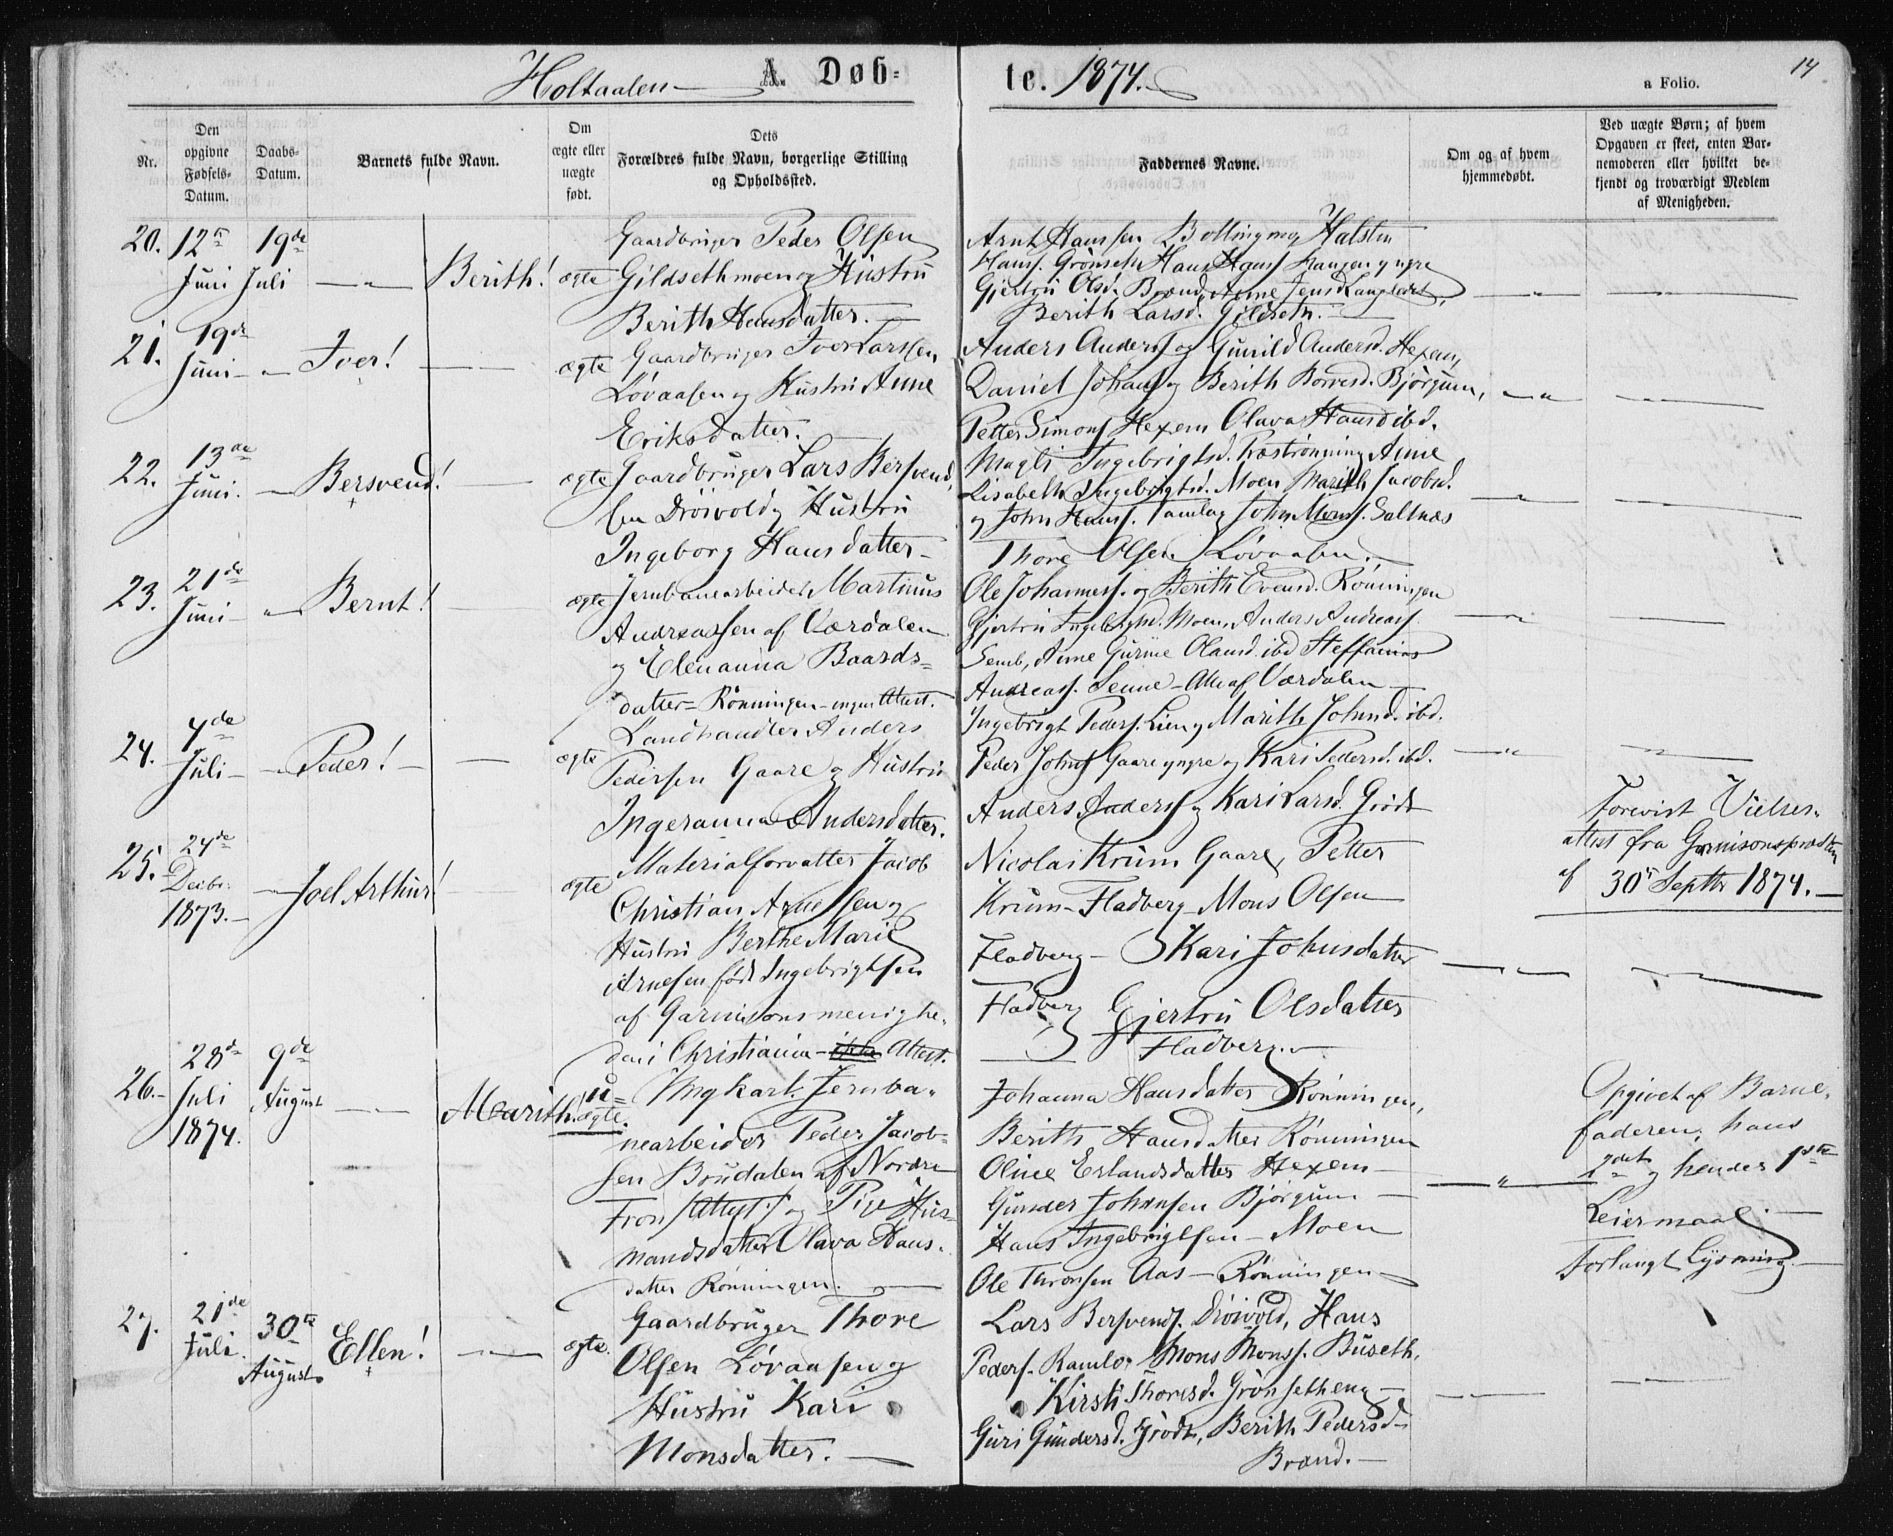 Holtaalen A. Døb=
te. 1874.
14
a Folio.
Nr.
Den opgivne Fødsels-Datum.
Daabs-Datum.
Barnets fulde Navn.
Om ægte eller uægte født.
Dets Forældres fulde Navn, borgerlige Stilling og Opholdssted.
Faddernes Navne.
Om og af hvem hjemmedøbt.
Ved uægte Børn; af hvem Opgaven er skeet, enten Barnemoderen eller hvilket bekjendt og troværdigt Medlem af Menigheden.
20. 12te Juni 19de Juli Berith! ægte
Gaardbruger Peder Olsen
Gildsethmoen og Hustru
Berith Hansdatter.
Arnt Hanssen Holsten
Hans. Grønseth Hans Hans. Haugen yngre
Gjertru Olsd. Brænd, Anne Jensd. Langland,
Berith Larsd. Gildseth.
21. 19de Juni Iver! ægte
Gaardbruger Iver Larssen
Løvaasen og Hustru Anne
Eriksdatter.
Anders Anders. og Gunild Andersd. Hexem,
Daniel Johans. og Berith Bjørgum,
Petter Simons. Hexem Olava Hansd. ibd.
22. 13de Juni Bersvend! ægte
Gaardbruger Lars Bersvend,
sen Drøivold og Hustru
Ingeborg Hansdatter
Magli Ingebrigtsd. Anne
Lisabeth Ingebrigtsd. Moen Marith Jacobsd.
og John Hans. Ramlo, John Mons. Saltnæs
Thore Olsen Løvaasen.
23. 21de Juni Bernt! ægte
Jernbanearbeider Martinus
Andreassen af Værdalen
og Elenanna Baards=
datter= Rønningen-ingen Attest.
Ole Johannes. og Berith Evensd. Rønningen
Gjertru Ingebrigtsd. Moen, Anders Andreas.
Semb, Anne Gurine Olausd. ibd Steffanias
Andreas. Senne-Alle af Værdalen
24. 4de Juli Peder! ægte
Landhandler Anders
Pedersen Gaare og Hustru
Ingeranna Andersdatter.
Ingebrigt Peders. Lien og Marith Johnsd. ibd.
Peder Johns. Gaare yngre og Kari Pedersd. ibd.
Anders Anders. og Kari Larsd. Grødt
25. 24de Decbr. 1873. Joel Arthur! ægte
Materialforvalter Jacob
Christian Arnessen og
Hustru Berthe Marie
Arnesen født Ingebrigtsen
af Garnisonsmenighe-
den i Christiania Attest.
Nicolai Krum Gaare, Petter
Krum-Fladberg Mons Olsen
Fladberg- Kari Johnsdatter
Fladberg Gjertru Olsdatter
Fladberg.
Forevist Vielses-
attest fra Garnisonspræsten
af 30' Septbr 1874.
26. 28de Juli 1874. 9de August Marith! uægte.
Ungkarl. Jernba-
nearbeider Peder Jacob-
sen Brudalen af Nordre
Fron /Attest/ og Pige Hus-
mandsdatter Olava Hans-
datter Rønningen.
Johanna Hansdatter Rønningen,
Berith Hansdatter Rønningen
Oline Erlandsdatter Hexem
Gunder Johansen Bjørgum
Hans Ingebrigtsen Moen
Ole Thronsen Aas Rønningen
Opgivet af Barne-
faderen, hans
2det og hendes 1ste
Leiermaal.
Forlangt Lysning.
27. 21de Juli. 30te August Ellen! ægte.
Gaardbruger Thore
Olsen Løvaasen og
Hustru Kari
Monsdatter.
Lars Bersvends. Drøivold, Hans
Peders. Ramlo, Mons Mons. Buseth,
Kirsti Thoresd. Grønsetheng
Guri Gundersd. Grødt, Berith Pedersd.
Brænd.